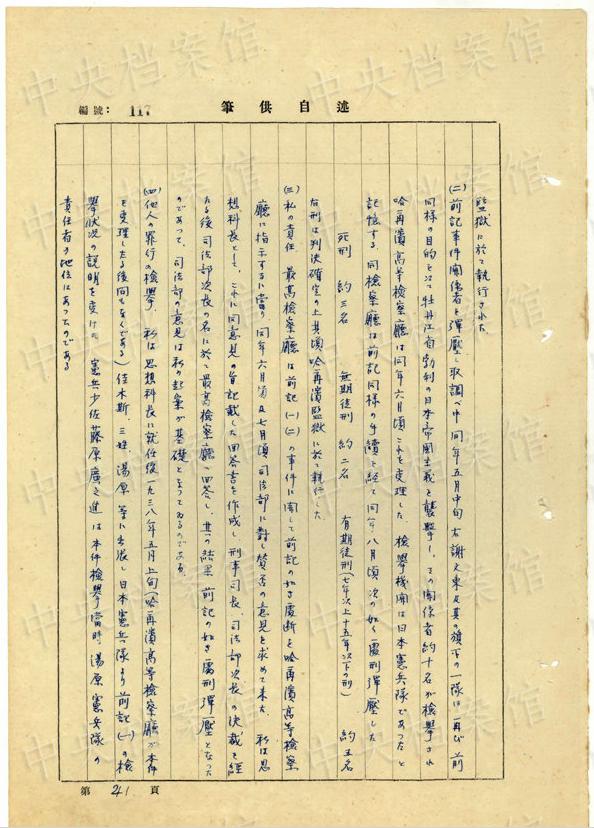 編號： 117
筆供自述
監獄に於て執行された
(二)前記事件関係者を彈壓し取調べ中同年五月中旬右謝文東及其の領下の一隊は再び前
同様の目的を以て牡丹江省勃利の日本帝国主義を襲撃し、その関係者約十名が検擧され
哈爾濱高等検察廳は同年六月頃これを受理した。検擧機関は日本憲兵隊であったと
記憶する。同検察廳は前記同様の手續を経て同年八月頃次の如く處刑彈壓した
死刑 約三名 無期徒刑 約二名 有期徒刑(七年以上十五年以下の刑) 約五名
右刑は判決確定の上其頃哈爾濱監獄に於て執行した
(三)私の責任 最高検察廳は前記(一)(二)の事件に関して前記の如き處断を哈爾濱高等検察
廳に指示するに當り、同年六月頃及七月頃司法部に對し賛否の意見を求めて来た。私は思
想科長として、これに同意見の旨記載した回答書を作成し、刑事司長、司法部次長の決裁を経
たる後司法部次長の名に於て最高検察廳へ回答し、其の結果前記の如き處刑彈壓となった
のであって、司法部の意見は私の起案が基礎となってゐるのである。
(四)他人の罪行の検擧 私は思想科長に就任後一九三八年五月上旬(哈爾濱高等検察廳が本件
を受理したる後間もなくである)佳木斯、三姓、湯原等に出張し日本憲兵隊より前記(一)の検
擧状況の説明を受けた 憲兵少佐藤原廣之進は本件検擧當時湯原憲兵隊の
責任者の地位にあったのである
第 241 頁
中央档案馆